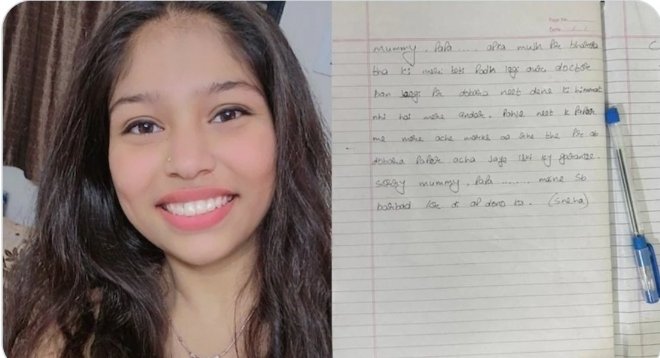 Page No.
Date
mummy, papa ..... apka mujh pr bharosa
tha ki meri beti Padh legi aur doctor
ban legi Pr dobara neet dene ki himmat
nhi hai mere andar. Pahle neet k Paper
me mere ache marks aa rhe the Pr ab
dobara Paper acha jaye iski ky guarantee.
sorry mummy, Papa ........ maine sb
barbad kr di ap dono ka. (Sneha)
C